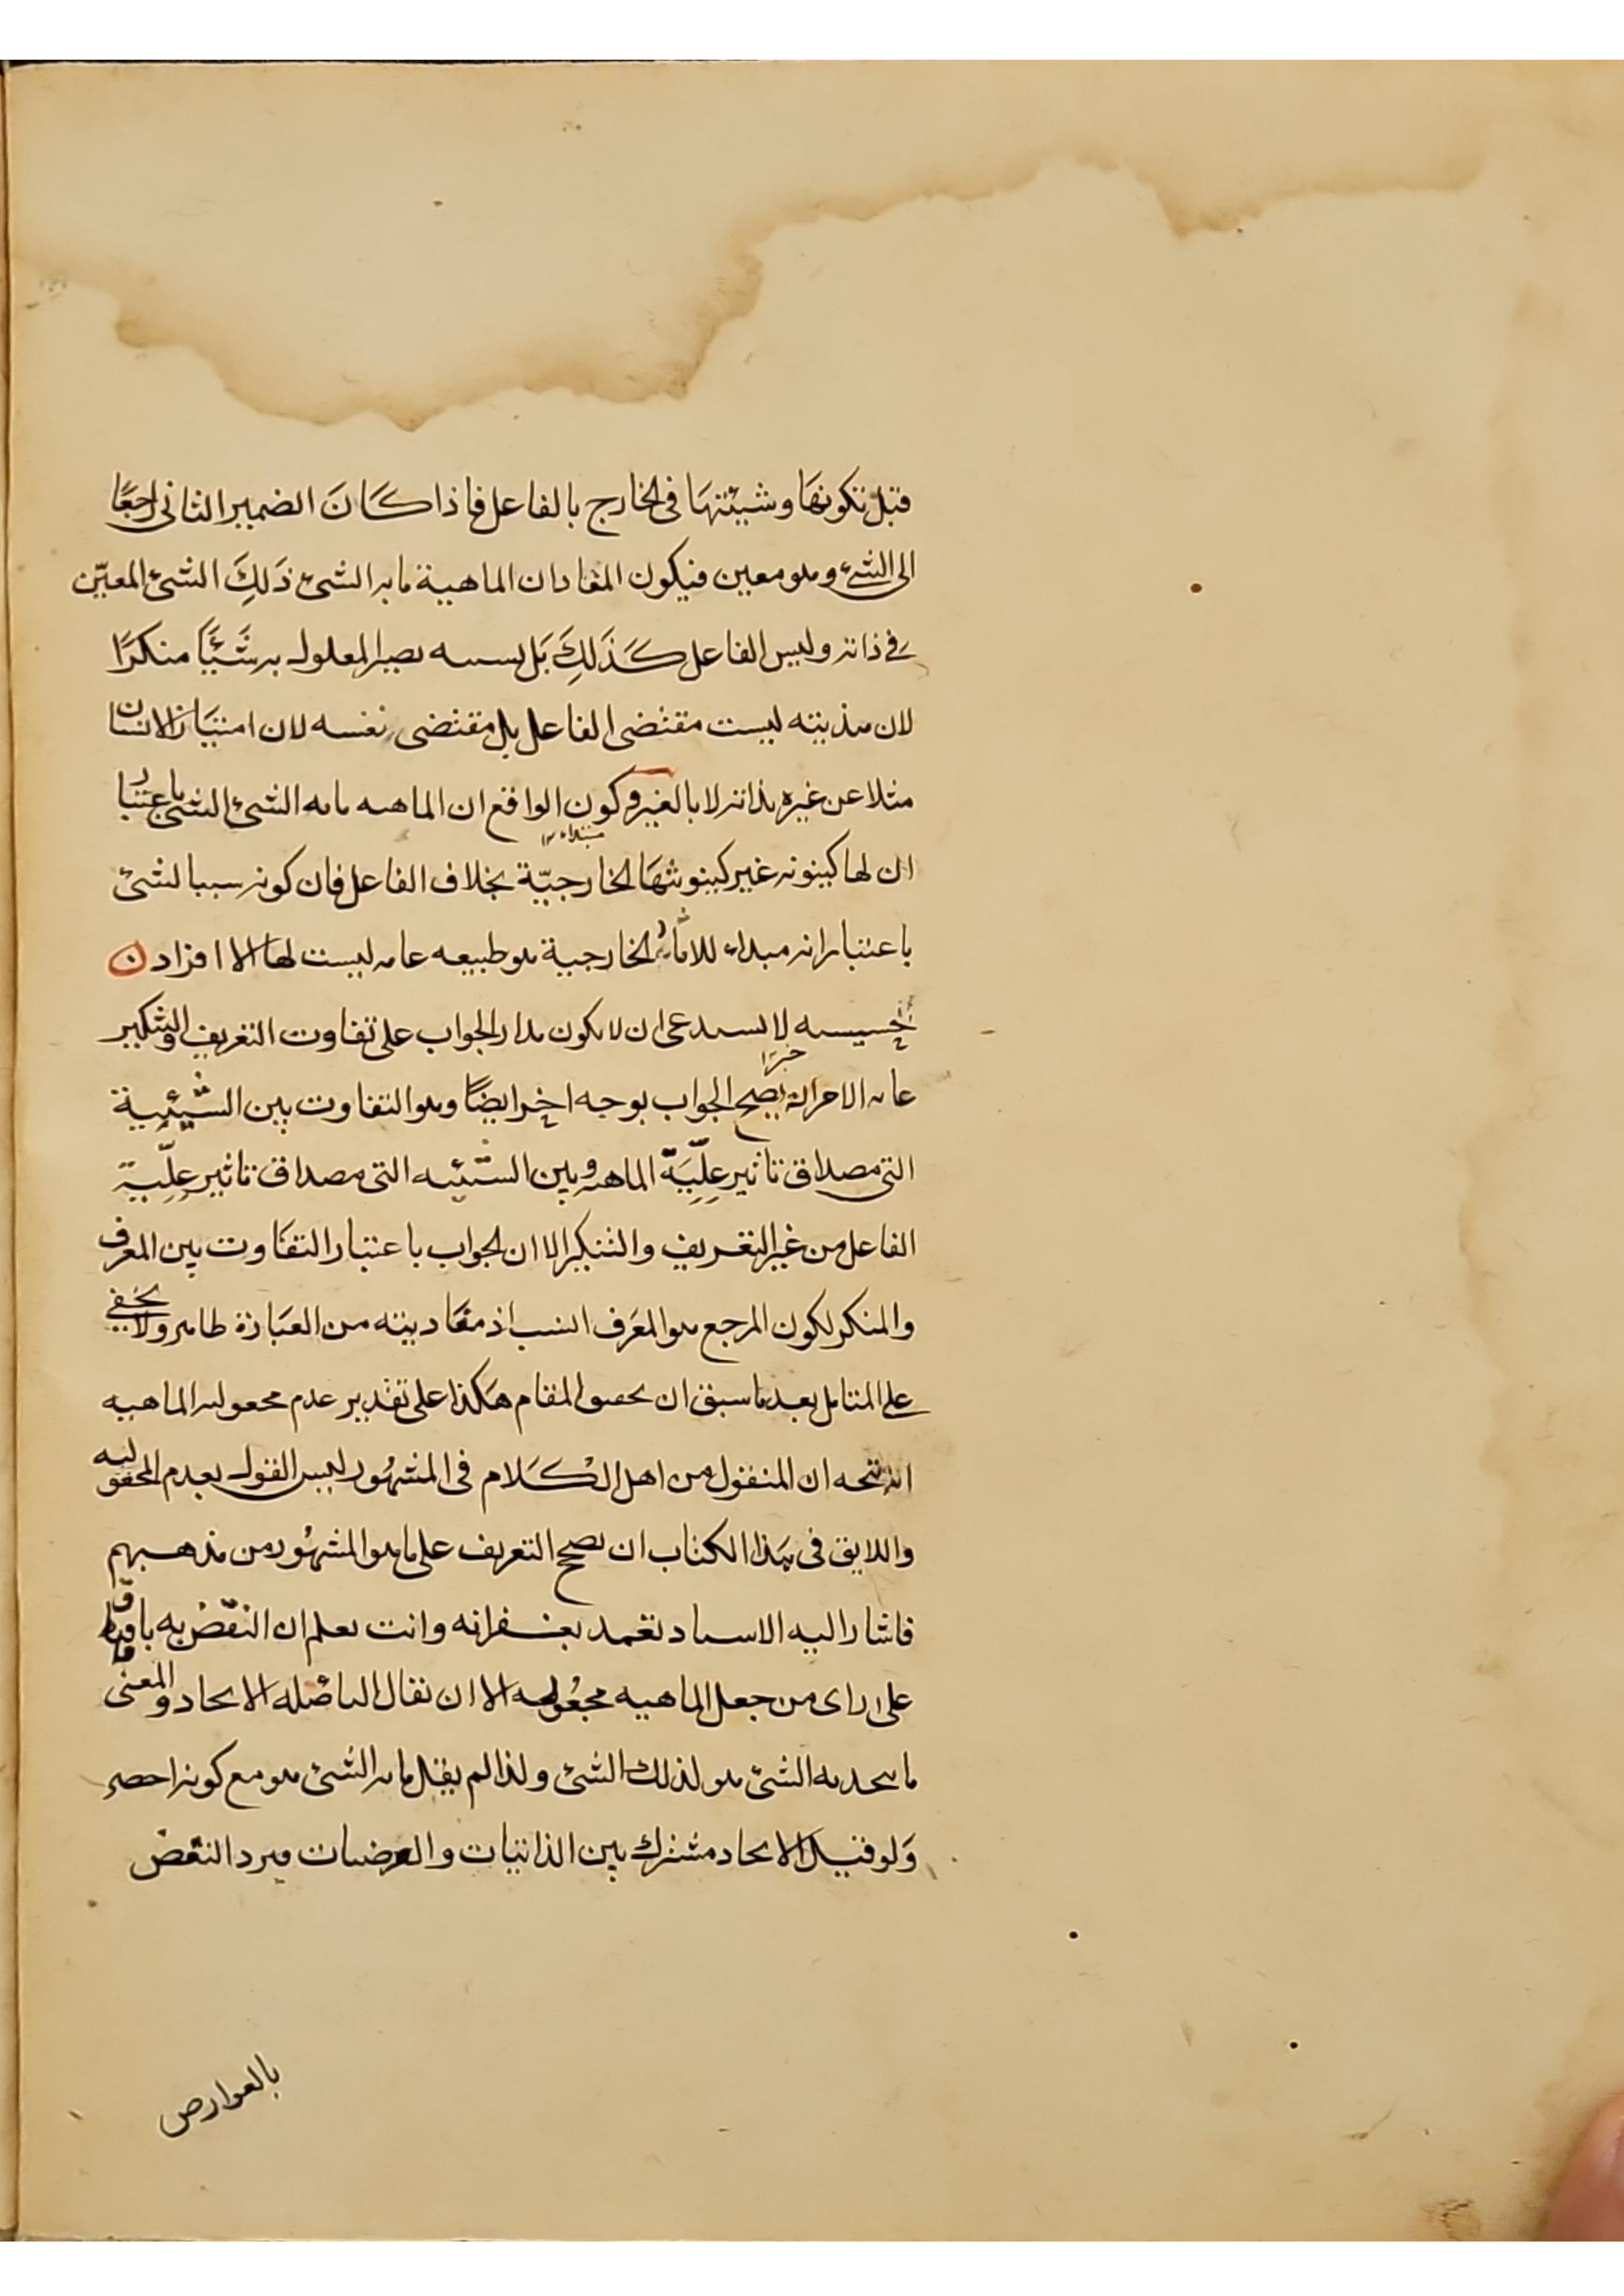 قبل تكونها وشيئتها فى الخارج بالفاعل فاذا كَانَ الضمير الثانى راجعًا
الى الشئ وهو معين فيكون المفاد ان الماهية ما به الشئ ذَلِكَ الشئ المعيّن
فى ذاته وليس الفاعل كَذَلِكَ بَل بسببه يصير المعلول به شَيْئًا منكرًا
لان هذيته ليست مقتضى الفاعل بل مقتضى نفسه لان امتياز الانسان
مثلا عن غيره بذاته لا بالغير وكون الواقع ان الماهيه ما به الشئ الشئ باعتبار
ان لها كينونه غير كينونتهَا الخارجيّة بخلاف الفاعل فان كونه سببا لشئ
مبتداء
باعتبار انه مبداء للاثار الخارجية هو طبيعه عامه ليست لها الا افراد ن
لا يستدعى ان لا يكون مدار الجواب على تفاوت التعريف والتنكير
خبر
الامر انه يصح الجواب بوجه اخر ايضًا وهو التفاوت بين الشيئية
التى مصداق تاثير عِلِّيَّة الماهيه وبين الشيئيه التى مصداق تاثير عِلِّيّة
الفاعل من غير التعريف والتنكير الا ان الجواب باعتبار التفاوت بين المعرف
والمنكر لكون المرجع هو المعَرف انسب اذ مفاديته من العبارة ظاهر ولا يخفى
على المتامل بعد ما سبق ان المقام هكذا على تقدير عدم مجعوليه الماهيه
ان المنقول من اهل الكَلام فى المشهُور ليس القول بعدم المجعوليه
واللايق فى هذا الكتاب ان يصح التعريف على ما هو المشهُور من مذهبهم
فاشار اليه الاستاد تغمد بغفرانه وانت تعلم ان النقض به باق
على راى من جعل الماهيه مجعُوله الا ان يقال الاتحاد والمعنى
ما يتحد به الشئ هو لذلك الشئ ولذا لم يقل ما به الشئ هو مع كونه اخصر
وَلو قيل الاتحاد مشترك بين الذاتيات والعرضيات فيرد النقض
بالعوارض